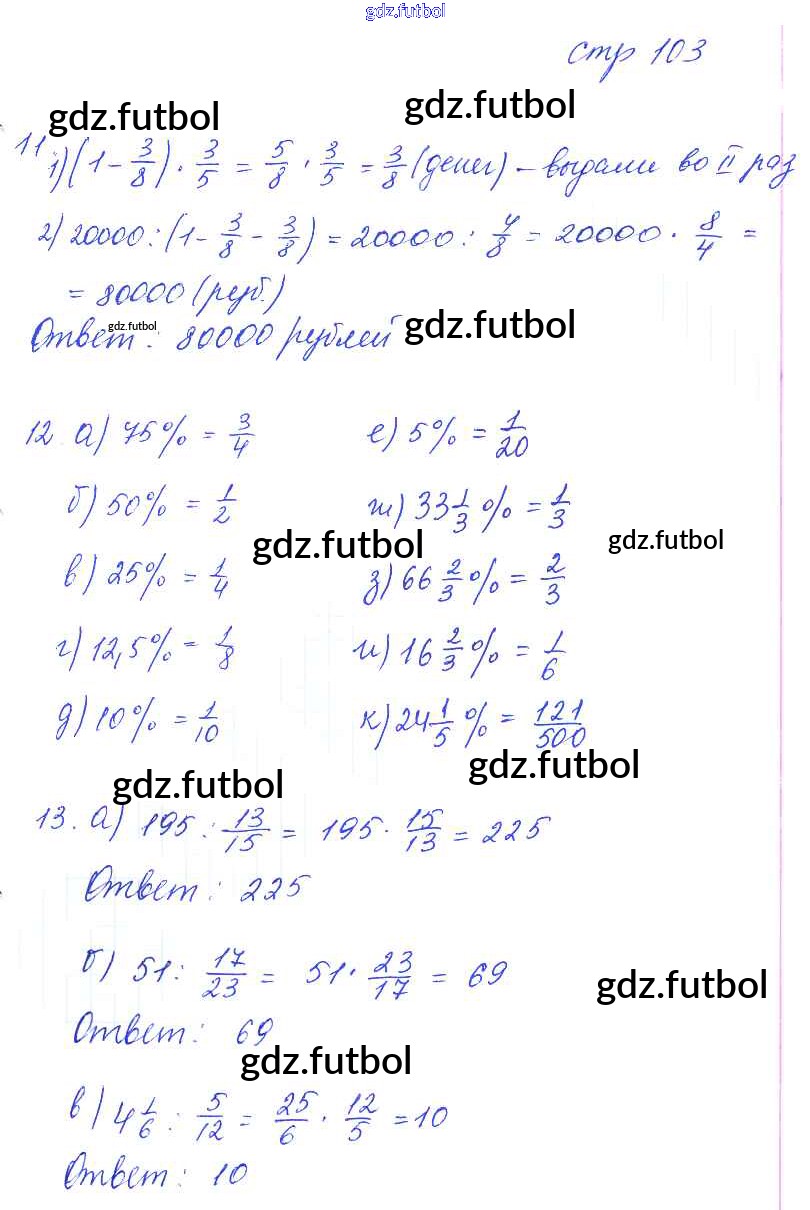 gdz.futbol
стр 103
gdz.futbol gdz.futbol
11 1) (1 - 3/8) · 3/5 = 5/8 · 3/5 = 3/8 (денег) - выдали во II раз
2) 20000 : (1 - 3/8 - 3/8) = 20000 : 4/8 = 20000 · 8/4 =
= 80000 (руб.)
Ответ: 80000 рублей
gdz.futbol gdz.futbol
12. а) 75% = 3/4 е) 5% = 1/20
б) 50% = 1/2 ж) 33 1/3 % = 1/3
gdz.futbol gdz.futbol
в) 25% = 1/4 з) 66 2/3 % = 2/3
г) 12,5% = 1/8 и) 16 2/3 % = 1/6
д) 10% = 1/10 к) 24 1/5 % = 121/500
gdz.futbol gdz.futbol
13. а) 195 : 13/15 = 195 · 15/13 = 225
Ответ: 225
б) 51 : 17/23 = 51 · 23/17 = 69
gdz.futbol
Ответ: 69
gdz.futbol
в) 4 1/6 : 5/12 = 25/6 · 12/5 = 10
Ответ: 10